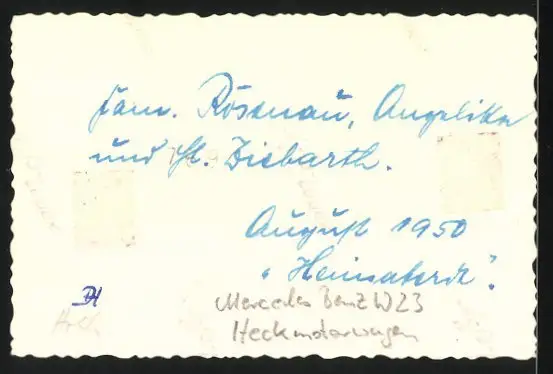 Fam. Rösenau, Angelika
und Frl. Ziebarth.
August 1950
"Heimaterde".
DH
Mercedes Benz W23
Heckmotorwagen